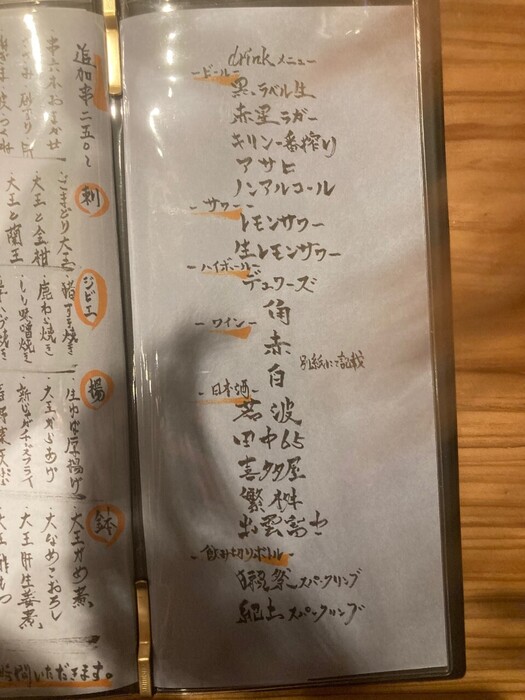 drink メニュー
ービールー
黒ラベル生
赤星ラガー
キリン一番搾り
アサヒ
ノンアルコール
ーサワーー
レモンサワー
生レモンサワー
ーハイボールー
デュワーズ
角
ーワインー
赤
別紙にて記載
白
ー日本酒ー
若波
田中65
喜多屋
繁桝
出雲富士
ー飲み切りボトルー
獺祭 スパークリング
紀土 スパークリング
追加串二五〇〜
串六本おまかせ
刺
・ごまどり大王
・大王と金柑
・大王と蘭王
ジビエ
・猪すき焼き
・鹿わら焼き
・しし味噌焼き
揚
・生ゆば厚揚げ
・大王からあげ
鉢
・大王かめ煮
・大なめこおろし
・大王肝生姜煮
いただきます。